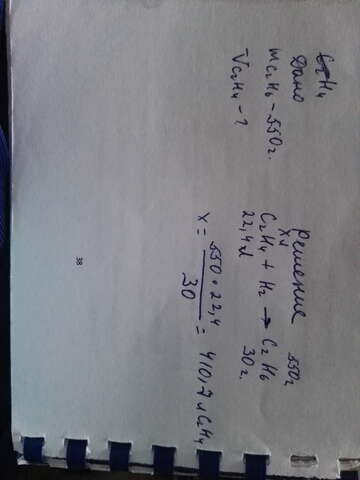 C₂H₄
Дано
mC₂H₆ - 550г.
V̄C₂H₄ - ?
Решение
Xл 550г
C₂H₄ + H₂ → C₂H₆
22,4л 30г.
X = 550 • 22,4 / 30 = 410,7 л C₂H₄
38